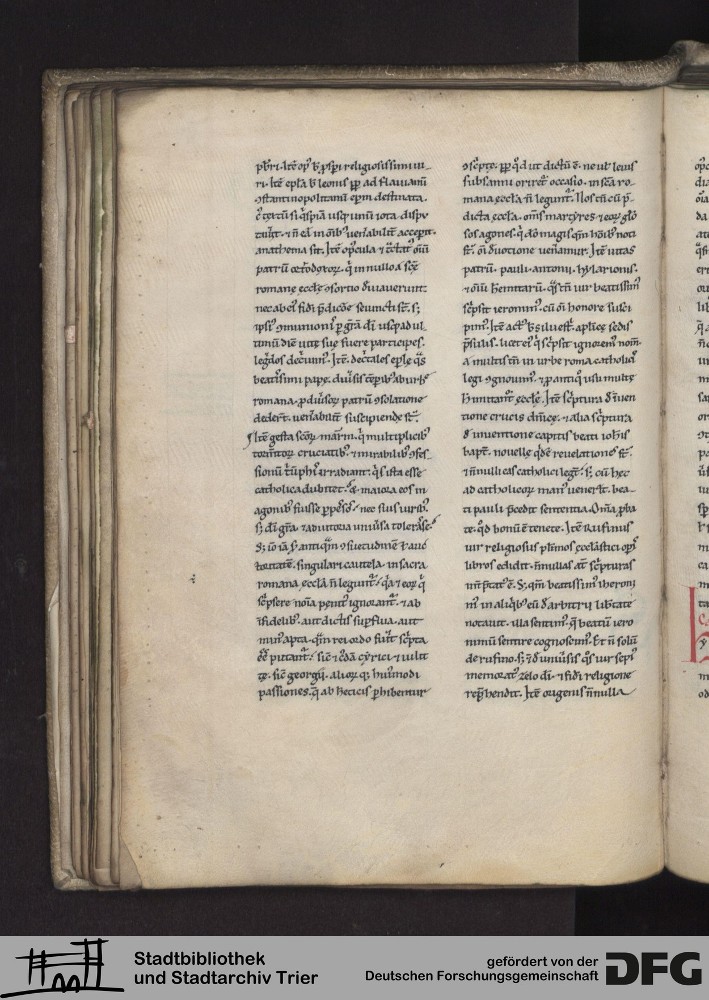 pbri. Itē op' b̄ ꝓspi religiosissimi ui-
ri. Itē epl̄a b̄ leonis pp̄ ad flauianū
ꝯstantinopolitanū ep̄m destinata.
textū si q̇spiā usq; unū iota dispu
tau̅it. ⁊ n̄ eā in ōib' uen̄abilit̄ accep̄it.
anathema sit. Itē op̄cula ⁊ t̄ctat' ōiū
patrū ortodoxoꝝ. q̇ in nullo a sc̄ę
romanę eccl̄ę ꝯsortio deuiauerunt:
nec ab ei' fidī p̄dicōe seiuncti st̄. s;
ipsi' ꝯmunioni' ꝑ gr̄a dī usq; ad ul
timū diē uitę suę fuere participes.
legēdos decerním'. Itē dec̄tales epl̄ę q̄s
beatissimi papę. diu̅sis tēpib' ab urbe
romana. ꝓ diu̅soꝝ patrū ꝯsolatione
dedert̄. uen̄abilit̄ suscipiende st̄.
Itē gesta sc̄oꝝ mar̄m. q̇ multiplicib'
tormtoꝝ cruciatib'. ⁊ mirabilib' ꝯfes-
sionū t̄ūphi' irradiant. q̄s ista esse
catholica dubitet. ⁊ maiora eos in
agonib' fuisse ꝑpesos. nec suis uirib'.
s; dī gr̄a. ⁊ adiutorio uniu̅sa tolerasse.
S; iō iā s̄ antiquā ꝯsuetudinē ⁊ auc
toritatē. singulari cautela. in sacra
romana eccl̄a n̄ legunt̄. q̇a ⁊ eoꝝ q̇
sc̄psere noīa penit' ignorant̄. ⁊ ab
īfidelib'. aut dictis sup̄flua. aut
min' apta. quā rei ordo fuit̄ sc̄pta
eē putant̄. sic̄ ⁊ cuidā cyrici ⁊ iulit
tę. sic̄ georgii. alioꝝ q; hui'modi
passiones. q̄ ab hęreticis ꝑhibentur
ꝯsc̄ptę. ꝓp̄ q̇d ut dictū ē. ne ut̄ leuis
subsannādi oriret̄ occasio. in sc̄a ro-
mana eccl̄a n̄ legunt̄. Nos tn̄ cū p̄-
dicta eccl̄a. om̄s martyres. ⁊ eoꝝ glō
sos agones. q̇ dō magis quā hōib' noti
st̄. oī deuotione uen̄amur. Itē uitas
patrū. pauli. antonii. hylarionis.
⁊ ōiū h̄emitarū. q̄s tn̄ uir beatissim'
sc̄psit ieronim'. cū oī honore susci
pim'. Itē act' b̄ siluest̄. aplicę sedis
p̄sulis. licet ei' q̇ sc̄psit ignorem' nom̄
a multis tn̄ in urbe roma catholicis
legi ꝯgnouim'. ⁊ ꝓ antiq̊ usu multę
h' imitant̄ eccl̄ę. Itē sc̄ptura d' inuen
tione crucis dn̄icę. ⁊ alia sc̄ptura
d' inuentione capitis beati iohis
bapt̄. nouelle q̇dē reuelationes st̄.
⁊ n̄nulli eas catholici legt̄. s; cū hec
ad catholicoꝝ man' uener̄t. bea-
ti pauli p̄cedat sententia. Om̄a ꝓba
te. q̇d bonū ē tenete. Itē Rufinus
uir religiosus plīmos ęccl̄astici op̄is
libros edidit. n̄nullas at̄ sc̄pturas
int̄ptat' ē. S; qm̄ beatissim' iheroni
m' in aliq̇b' eū d' arbitrii lib̄tate
notauit. illa sentim'. q̄ beatū iero
nimū sentire cognoscim'. Et n̄ solū
de rufino. s; ⁊ d' uniu̅sis q̄s uir sepi'
memorat' zelo dī. ⁊ fidī religione
rep̄hendit. Itē origenis n̄nulla
Stadtbibliothek
und Stadtarchiv Trier
gefördert von der
Deutschen Forschungsgemeinschaft
DFG